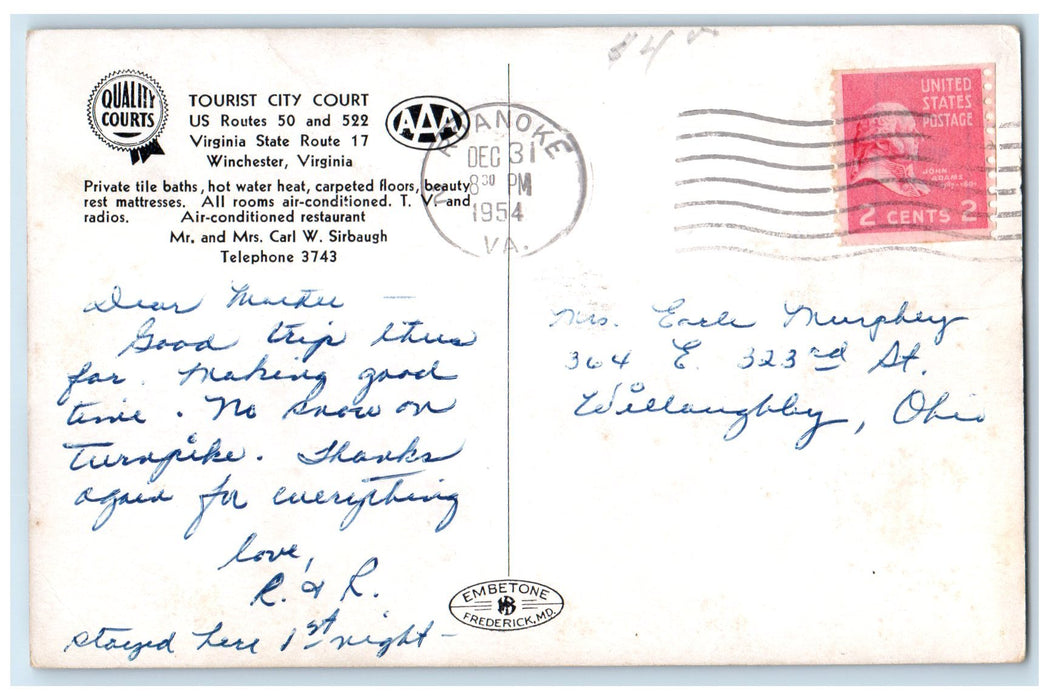 QUALITY
COURTS
TOURIST CITY COURT
US Routes 50 and 522
Virginia State Route 17
Winchester, Virginia
AAA
Private tile baths, hot water heat, carpeted floors, beauty
rest mattresses. All rooms air-conditioned. T. V. and
radios. Air-conditioned restaurant
Mr. and Mrs. Carl W. Sirbaugh
Telephone 3743
Dear
Good trip thus
far. Making good
time. No snow on
Turnpike. Thanks
again for everything
love,
R. & R.
stayed here 1st night -
EMBETONE
FREDERICK, MD.
ROANOKE
DEC 31
8 30 PM
1954
VA.
UNITED
STATES
POSTAGE
JOHN
ADAMS
2 CENTS 2
Mrs. Earle Murphey
364 E. 323rd St.
Willoughby, Ohio